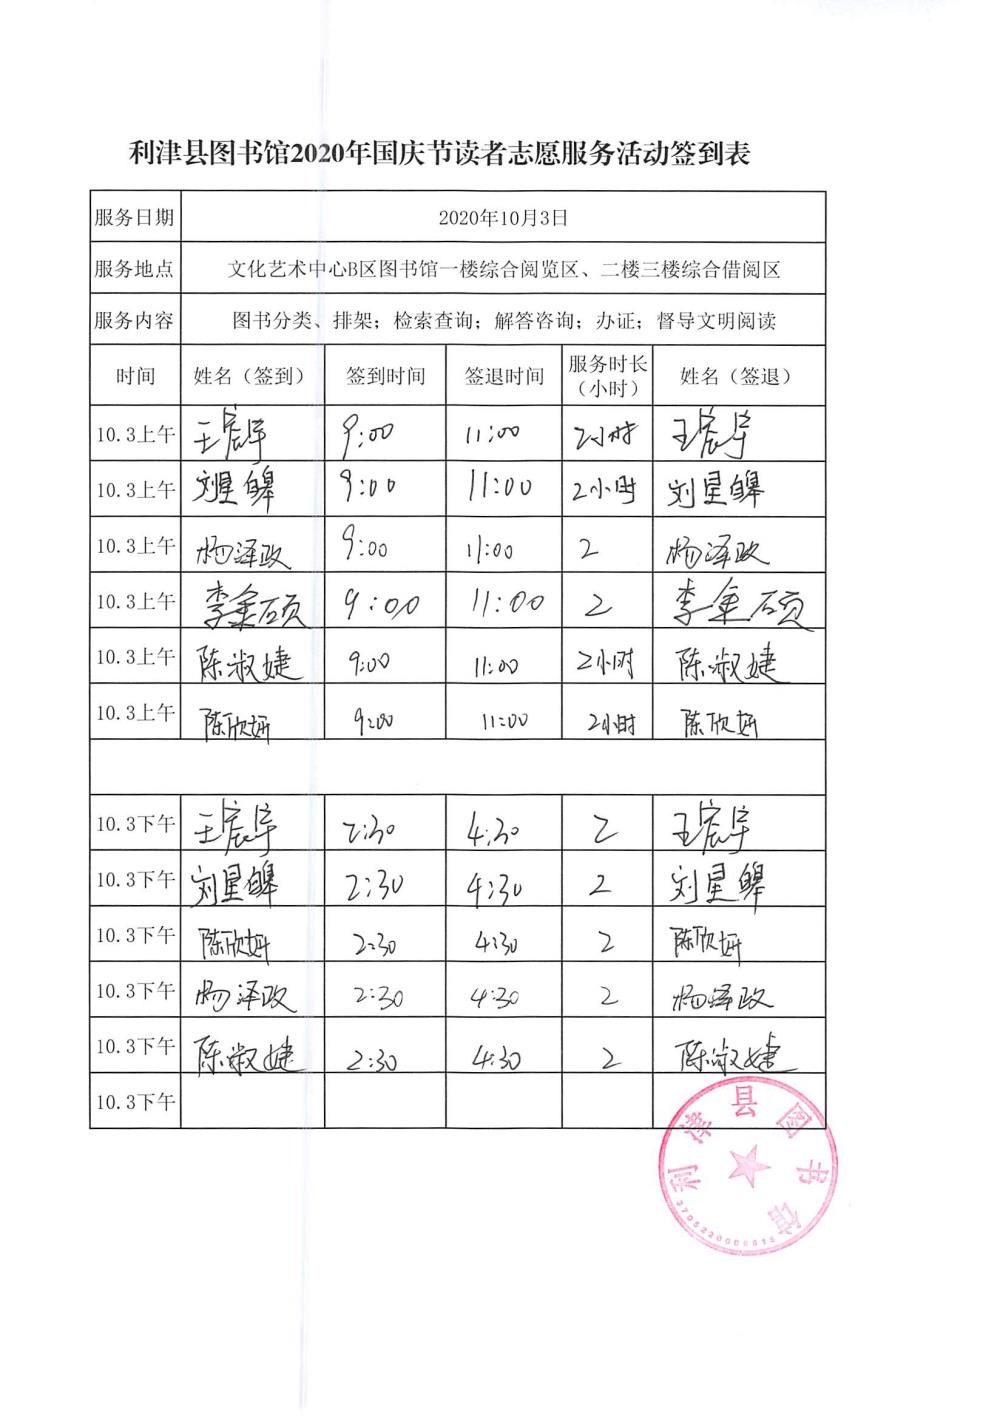 利津县图书馆2020年国庆节读者志愿服务活动签到表
服务日期 2020年10月3日
服务地点 文化艺术中心B区图书馆一楼综合阅览区、二楼三楼综合借阅区
服务内容 图书分类、排架；检索查询；解答咨询；办证；督导文明阅读
时间 姓名（签到） 签到时间 签退时间 服务时长（小时） 姓名（签退）
10.3上午 王宸宇 9:00 11:00 2小时 王宸宇
10.3上午 刘星皞 9:00 11:00 2小时 刘星皞
10.3上午 杨泽政 9:00 11:00 2 杨泽政
10.3上午 李金硕 9:00 11:00 2 李金硕
10.3上午 陈淑婕 9:00 11:00 2小时 陈淑婕
10.3上午 陈欣妍 9:00 11:00 2小时 陈欣妍
10.3下午 王宸宇 2:30 4:30 2 王宸宇
10.3下午 刘星皞 2:30 4:30 2 刘星皞
10.3下午 陈欣妍 2:30 4:30 2 陈欣妍
10.3下午 杨泽政 2:30 4:30 2 杨泽政
10.3下午 陈淑婕 2:30 4:30 2 陈淑婕
10.3下午
利津县图书馆